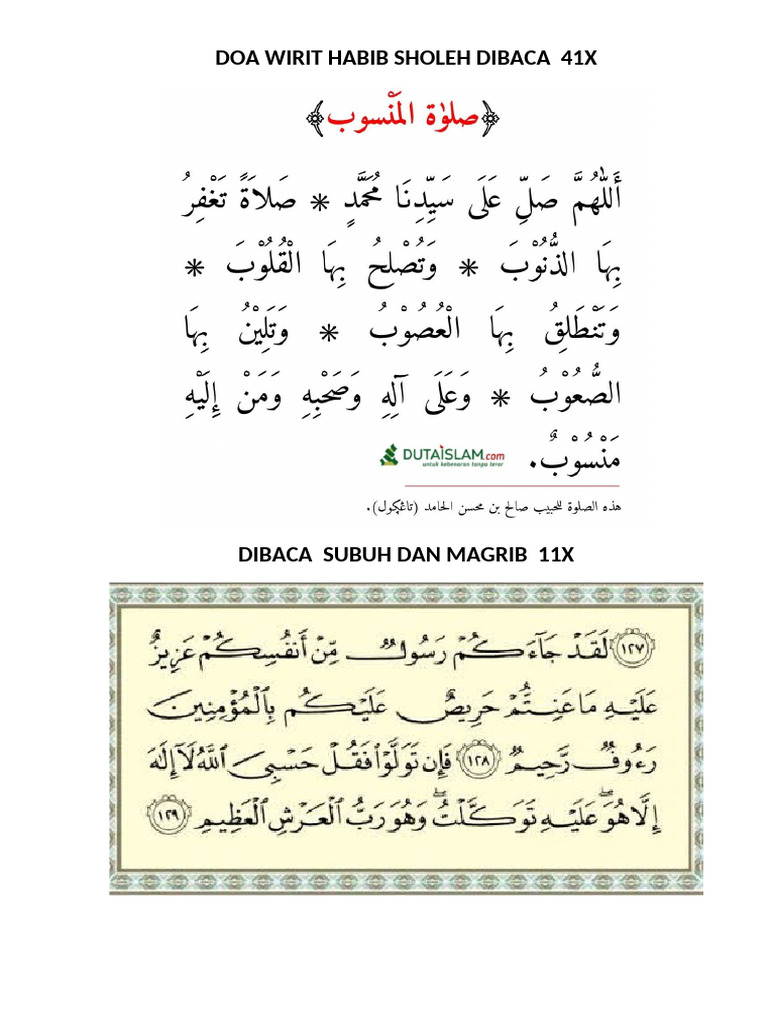 DOA WIRIT HABIB SHOLEH DIBACA 41X
﴿صلوٰة المَنْسوب﴾
أَللّٰهُمَّ صَلِّ عَلَى سَيِّدِنَا مُحَمَّدٍ * صَلاَةً تَغْفِرُ
بِهَا الذُّنُوْبَ * وَتُصْلِحُ بِهَا الْقُلُوْبَ *
وَتَنْطَلِقُ بِهَا الْعُصُوْبُ * وَتَلِيْنُ بِهَا
الصُّعُوْبُ * وَعَلَى آلِهِ وَصَحْبِهِ وَمَنْ إِلَيْهِ
مَنْسُوْبٌ.
DUTAISLAM.com
untuk kebenaran tanpa teror
هذه الصلوة للحبيب صالح بن محسن الحامد (تاڠݢول).
DIBACA SUBUH DAN MAGRIB 11X
١٢٧ لَقَدْ جَآءَكُمْ رَسُولٌ مِّنْ أَنفُسِكُمْ عَزِيزٌ
عَلَيْهِ مَا عَنِتُّمْ حَرِيصٌ عَلَيْكُم بِالْمُؤْمِنِينَ
رَءُوفٌ رَّحِيمٌ ١٢٨ فَإِن تَوَلَّوْا فَقُلْ حَسْبِيَ اللَّهُ لَآ إِلَٰهَ
إِلَّا هُوَ ۖ عَلَيْهِ تَوَكَّلْتُ ۖ وَهُوَ رَبُّ الْعَرْشِ الْعَظِيمِ ١٢٩